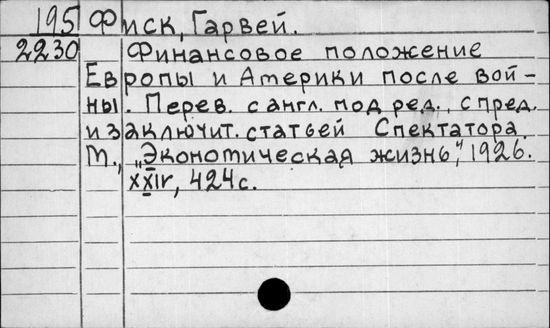 195 Фиск, Гарвей.
2230 Финансовое положение
Европы и Америки после вой-
ны. Перев. с англ. под ред., с пред.
и заключит. статьей Спектатора.
М., „Экономическая жизнь“, 1926.
XXIV, 424 с.